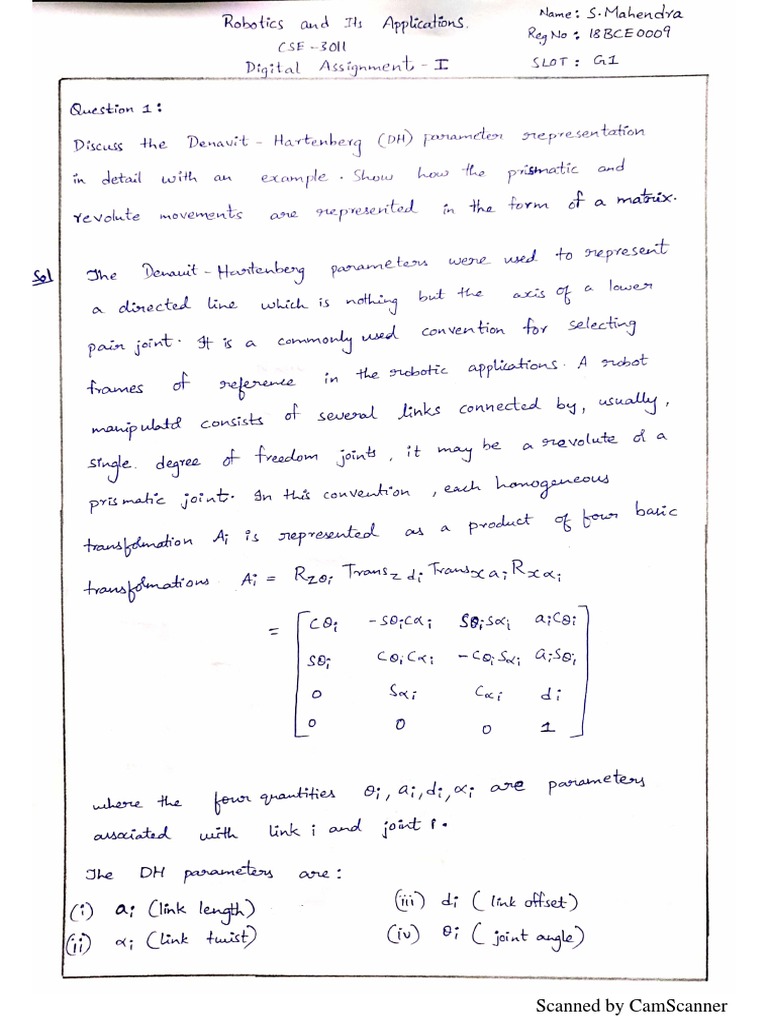 Robotics and Its Applications.
CSE-3011
Digital Assignment - I
Name: S. Mahendra
Reg No: 18BCE0009
SLOT: G1
Question 1:
Discuss the Denavit-Hartenberg (DH) parameter representation
in detail with an example. Show how the prismatic and
revolute movements are represented in the form of a matrix.
Sol
The Denavit-Hartenberg parameters were used to represent
a directed line which is nothing but the axis of a lower
pair joint. It is a commonly used convention for selecting
frames of reference in the robotic applications. A robot
manipulator consists of several links connected by, usually,
single degree of freedom joints, it may be a revolute or a
prismatic joint. In this convention, each homogeneous
transformation Ai is represented as a product of four basic
transformations Ai = Rzθi Transz di Transx ai Rxαi
= [ Cθi -Sθi Cαi Sθi Sαi ai Cθi
Sθi Cθi Cαi -Cθi Sαi ai Sθi
0 Sαi Cαi di
0 0 0 1 ]
where the four quantities θi, ai, di, αi are parameters
associated with link i and joint i.
The DH parameters are:
(i) ai (link length)
(ii) αi (Link twist)
(iii) di (link offset)
(iv) θi (joint angle)
Scanned by CamScanner